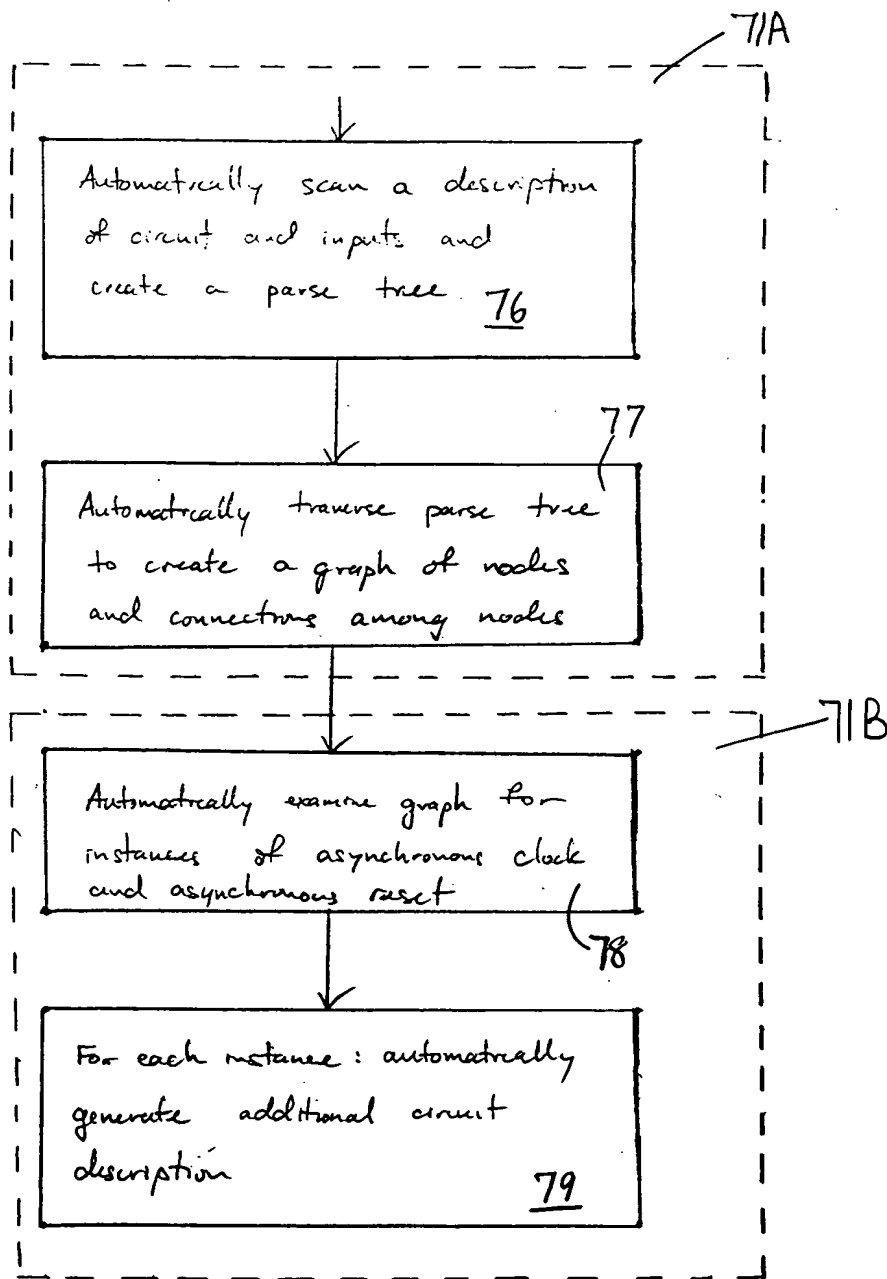 71A
Automatically scan a description
of circuit and inputs and
create a parse tree 76
77
Automatically traverse parse tree
to create a graph of nodes
and connections among nodes
71B
Automatically examine graph for
instances of asynchronous clock
and asynchronous reset
78
For each instance : automatically
generate additional circuit
description
79